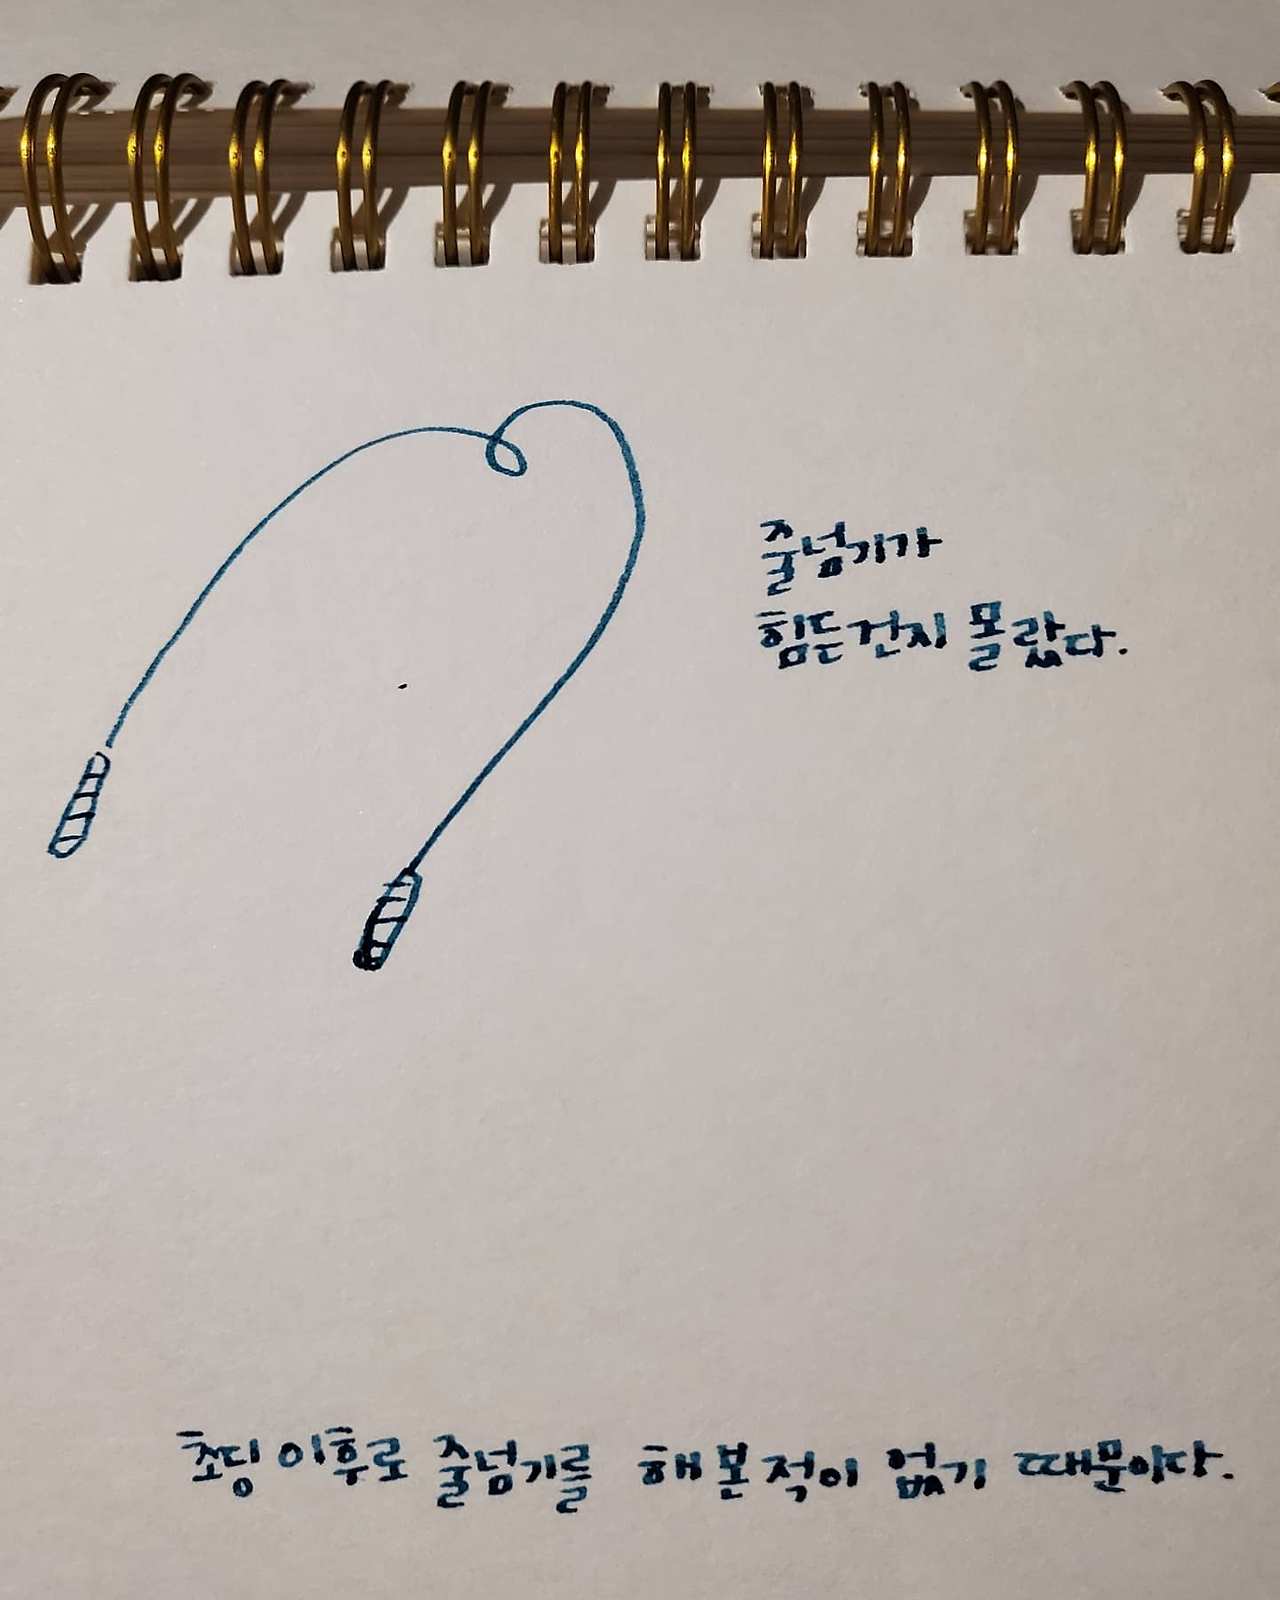 줄넘기가
힘든건지 몰랐다.
초딩 이후로 줄넘기를 해본적이 없기 때문이다.